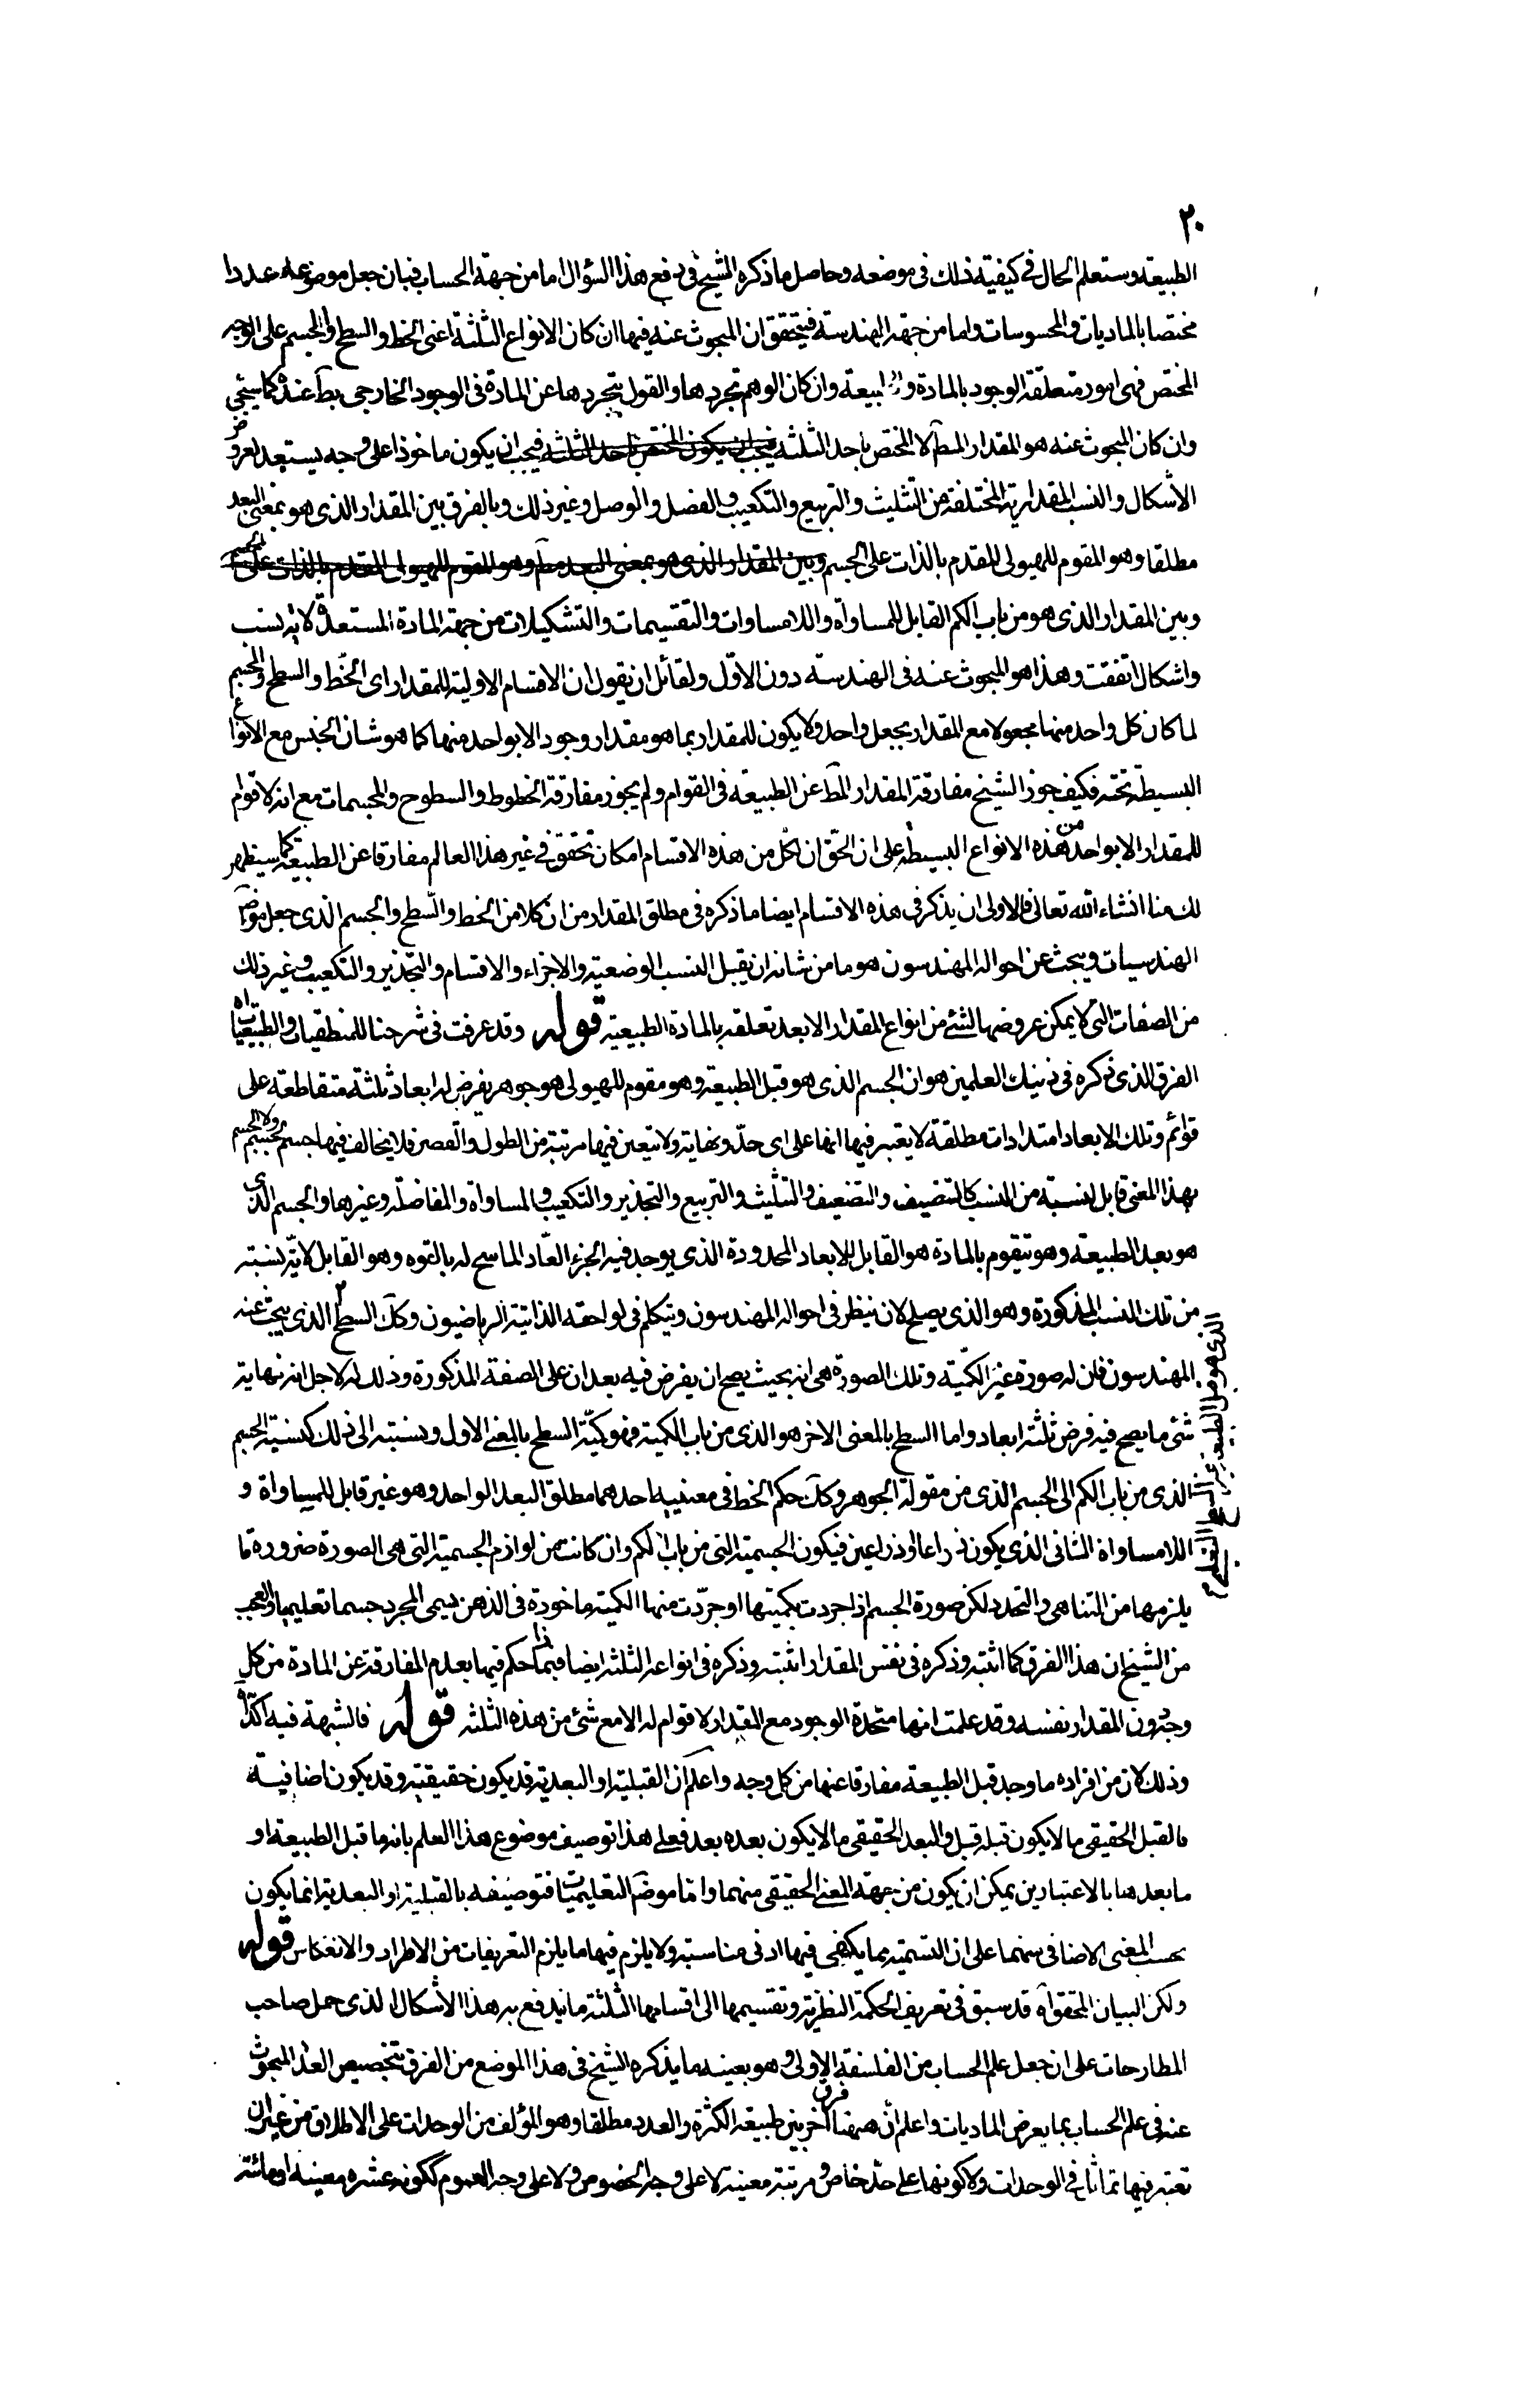 ٢٠
الطبيعة وستعلم الحال في كيفية ذلك في موضعه وحاصل ما ذكره الشيخ في دفع هذا السؤال اما من جهة الحساب فبان جعل موضوعه عددا
مختصا بالماديات والمحسوسات واما من جهة الهندسة فيتحقق ان المبحوث عنه فيها ان كان الانواع الثلثة اعنى الخط والسطح والجسم على الوجه
المختص فهى امور متعلقة الوجود بالمادة والطبيعة وان كان الوهم تجردها والقول بتجردها عن المادة فى الوجود الخارجى بط عنده كما سيجئ
وان كان المبحوث عنه هو المقدار المط لا المختص باحد الثلثه فيجب ان يكون المختص باحد الثلثه فيجب ان يكون ماخوذا على وجه يستعد لعروض
الأشكال والنسب المقدارية المختلفة من التثليث والتربيع والتكعيب والفصل والوصل وغير ذلك وبالفرق بين المقدار الذى هو بمعنى البعد
مطلقا وهو المقوم للهيولى المتقدم بالذات على الجسم وبين المقدار الذى هو بمعنى البعد مط وهو المقوم للهيولى المتقدم بالذات على الجسم
وبين المقدار الذى هو من باب الكم القابل للمساواة واللامساوات والتقسيمات والتشكيلات من جهة المادة المستعدة لاية نسب
واشكال اتفقت وهذا هو المبحوث عنه فى الهندسة دون الاوّل ولقائل ان يقول ان الاقسام الاولية للمقدار اى الخّط والسطح والجسم
لما كان كل واحد منها مجعولا مع المقدار بجعل واحد ولا يكون للمقدار بما هو مقدار وجود الا بواحد منها كما هو شان الجنس مع الانواع
البسيطة تحته فكيف جوز الشيخ مفارقة المقدار المط عن الطبيعة فى القوام ولم يجوز مفارقة الخطوط والسطوح والمجسمات مع انه لا قوام
للمقدار الا بواحد من هذه الانواع البسيطة على ان الحّق ان لكل من هذه الاقسام امكان تحقق في غير هذا العالم مفارقا عن الطبيعة كما سيظهر
لك منا انشاء الله تعالى فالاولى ان يذكر فى هذه الاقسام ايضا ما ذكره فى مطلق المقدار من ان كلا من الخط والسّطح والجسم الذى جعل موضوع
الهندسيات ويبحث عن احواله المهندسون هو ما من شانه ان يقبل النسب الوضعية والاجزاء والاقسام والتجذير والتكعيب وغير ذلك
من الصفات التى لا يمكن عروضها لشئ من انواع المقدار الا بعد تعلقه بالمادة الطبيعية قوله وقد عرفت فى شرحنا للمنطقيات والطبيعيات اه
الفرق الذى ذكره فى ذينك العلمين هو ان الجسم الذى هو قبل الطبيعة وهو مقوم للهيولى هو جوهر يفرض له ابعاد ثلثة متقاطعة على
قوائم وتلك الابعاد امتدادات مطلقة لا يعتبر فيها انها على اى حدّ ونهاية ولا يتعين فيها مرتبة من الطول والقصر فلا يخالف فيها جسم لجسم ولا الجسم
بهذا المعنى قابل لنسبة من النسب كالتنصيف والتضعيف والتثليث والتربيع والتجذير والتكعيب والمساواة والمفاضلة وغيرها والجسم الذى
هو بعد الطبيعة وهو متقوم بالمادة هو القابل للابعاد المحدودة الذى يوجد فيه الجزء العّاد الماسح له بالقوه وهو القابل لايّة نسبة
من تلك النسب المذكورة وهو الذى يصلح لان ينظر فى احواله المهندسون ويتكلم فى لواحقه الذاتية الرياضيون وكك السطح الذى يبحث عنه
المهندسون فان له صورة غير الكمّية وتلك الصورة هى انه بحيث يصح ان يفرض فيه بعدان على الصفة المذكورة وذلك له لاجل انه نهاية
شئ ما يصح فيه فرض ثلثة ابعاد واما السطح بالمعنى الاخر هو الذى من باب الكمية فهو كميّة السطح بالمعنى الاول ونسبته الى ذلك كنسبة الجسم
الذى من باب الكم الى الجسم الذى من مقولة الجوهر وكك حكم الخط فى معنييه احدهما مطلق البعد الواحد وهو غير قابل للمساواة و
اللامساواة الثانى الذى يكون ذراعا او ذراعين فيكون الجسمية التى من باب الكم وان كانت من لوازم الجسمية التى هى الصورة ضرورة ما
يلزمها من التناهى والتحدد لكن صورة الجسم اذا جردت بكميتها او جرّدت منها الكمية ماخوذة فى الذهن يسمى المجرد جسما تعليميا والعجب
من الشيخ ان هذا الفرق كما اثبته وذكره فى نفس المقدار اثبته وذكره فى انواعه الثلثة ايضا فبماذا حكم فيها بعدم المفارقة عن المادة من كل
وجه دون المقدار نفسه وقد علمت انها متحدة الوجود مع المقدار لا قوام له الا مع شئ من هذه الثلثه قوله فالشبهة فيه اكد اه
وذلك لان من افراده ما وجد قبل الطبيعة مفارقا عنها من كل وجه واعلم ان القبلية او البعدية قد يكون حقيقية وقد يكون اضافية
فالقبل الحقيقى ما لا يكون قبله قبل والبعد الحقيقى ما لا يكون بعده بعد فعلى هذا توصيف موضوع هذا العلم بانه ما قبل الطبيعة او
ما بعدها بالاعتبارين يمكن ان يكون من جهة المعنى الحقيقى منهما واما موضوع التعليميات فتوصيفه بالقبلية او البعدية انما يكون
بحسب المعنى الاضافى منهما على ان التسمية بما يكفى فيها ادنى مناسبة ولا يلزم فيها ما يلزم التعريفات من الاطراد والانعكاس قوله
ولكن البيان المحقق اه قد سبق فى تعريف الحكمة النظرية وتقسيمها الى اقسامها الثلثة ما يندفع به هذا الأشكال الذى حمل صاحب
المطارحات على ان جعل علم الحساب من الفلسفة الاولى وهو بعينه ما يذكره الشيخ فى هذا الموضع من الفرق بتخصيص العدد المبحوث
عنه فى علم الحساب بما يعرض الماديات واعلم انّ ههنا فرق اخر بين طبيعة الكثرة والعدد مطلقا وهو المؤلف من الوحدات على الاطلاق من غير ان
تعتبر فيها تماثل فى الوحدات ولا كونها على حدّ خاص ومرتبة معينة لا على وجه الخصوص ولا على وجه العموم ككونه عشره معينة او مائة